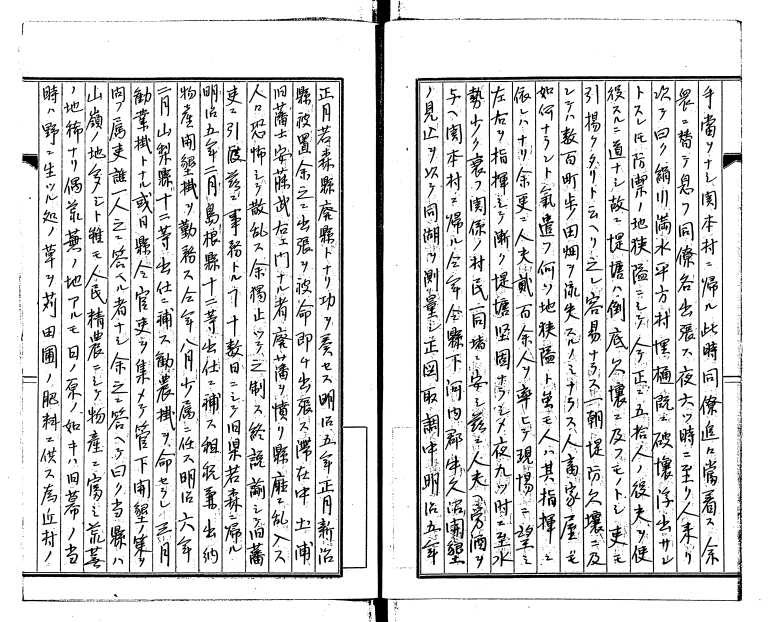 手當ヲナシ関本村ニ帰ル此時同僚追々當着ス余
衆ニ替テ息フ同僚各出張ス夜六ツ時ニ至リ人来リ
次テ曰ク絹川満水平方村埋樋既ニ破壊浮出サレ
トスレ𪜈防禦ノ地狭隘ニシテ人今正ニ五拾人ノ役夫ヲ使
役スルニ道ナシ故ニ堤塘ハ倒底欠壊ニ及フモノトシ吏モ
引揚ケタリト云ヘリ之レ容易ナラス一朝堤防欠壊ニ及
レテハ数百町歩ノ田畑ヲ流失スルノミナラス人畜家屋モ
如何ナラント氣遣フ何ソ地狭隘ト虽モ人ハ其指揮ニ
依レハナリト余更ニ人夫貳百余人ヲ率ヒテ現場ニ望ミ
左右ヲ指揮シテ漸ク堤塘堅固ナラシメ夜九ツ時ニ至水
勢少ク衰フ関係ノ村民一同堵ニ安シ茲ニ人夫ニ労酒ヲ
与ヘ関本村ニ帰ル仝年仝縣下河内郡牛久沼開墾
ノ見込ヲ以テ同湖ヲ測量シ正図取調中明治五年
正月若森縣廃縣トナリ功ヲ奏セス明治五年正月新治
縣被置余之ニ出張ヲ被命即チ出張ス滞在中土浦
旧藩士安藤武右エ門ナル者廃藩ヲ憤リ縣庁ニ乱入ス
人々恐怖シテ散乱ス余獨止ツテ之ヲ制ス終説諭シテ旧藩
吏ニ引渡茲ニ事務トル了十数日ニシテ旧県若森ニ帰ル
明治五年二月島根縣十二等出仕ニ補ス租税兼出納
物産開墾掛ヲ勤務ス仝年八月少属ニ任ス明治六年
二月山梨縣十二等出仕ニ補ス勧農掛ヲ命セラレ三月
勧業掛トナル或日縣令官吏ヲ集メテ管下開墾ノ策ヲ
問フ属吏誰一人之ニ答ヘル者ナシ余之ニ答ヘテ曰ク当縣ハ
山嶺ノ地多シト雖モ人民精農ニシテ物産ニ富ミ荒蕪
ノ地稀ナリ偶荒蕪ノ地アルモ日ノ原ノ如キハ旧幕ノ当
時ハ野ニ生ツル処ノ草ヲ苅田圃ノ肥料ニ供ス為近村ノ